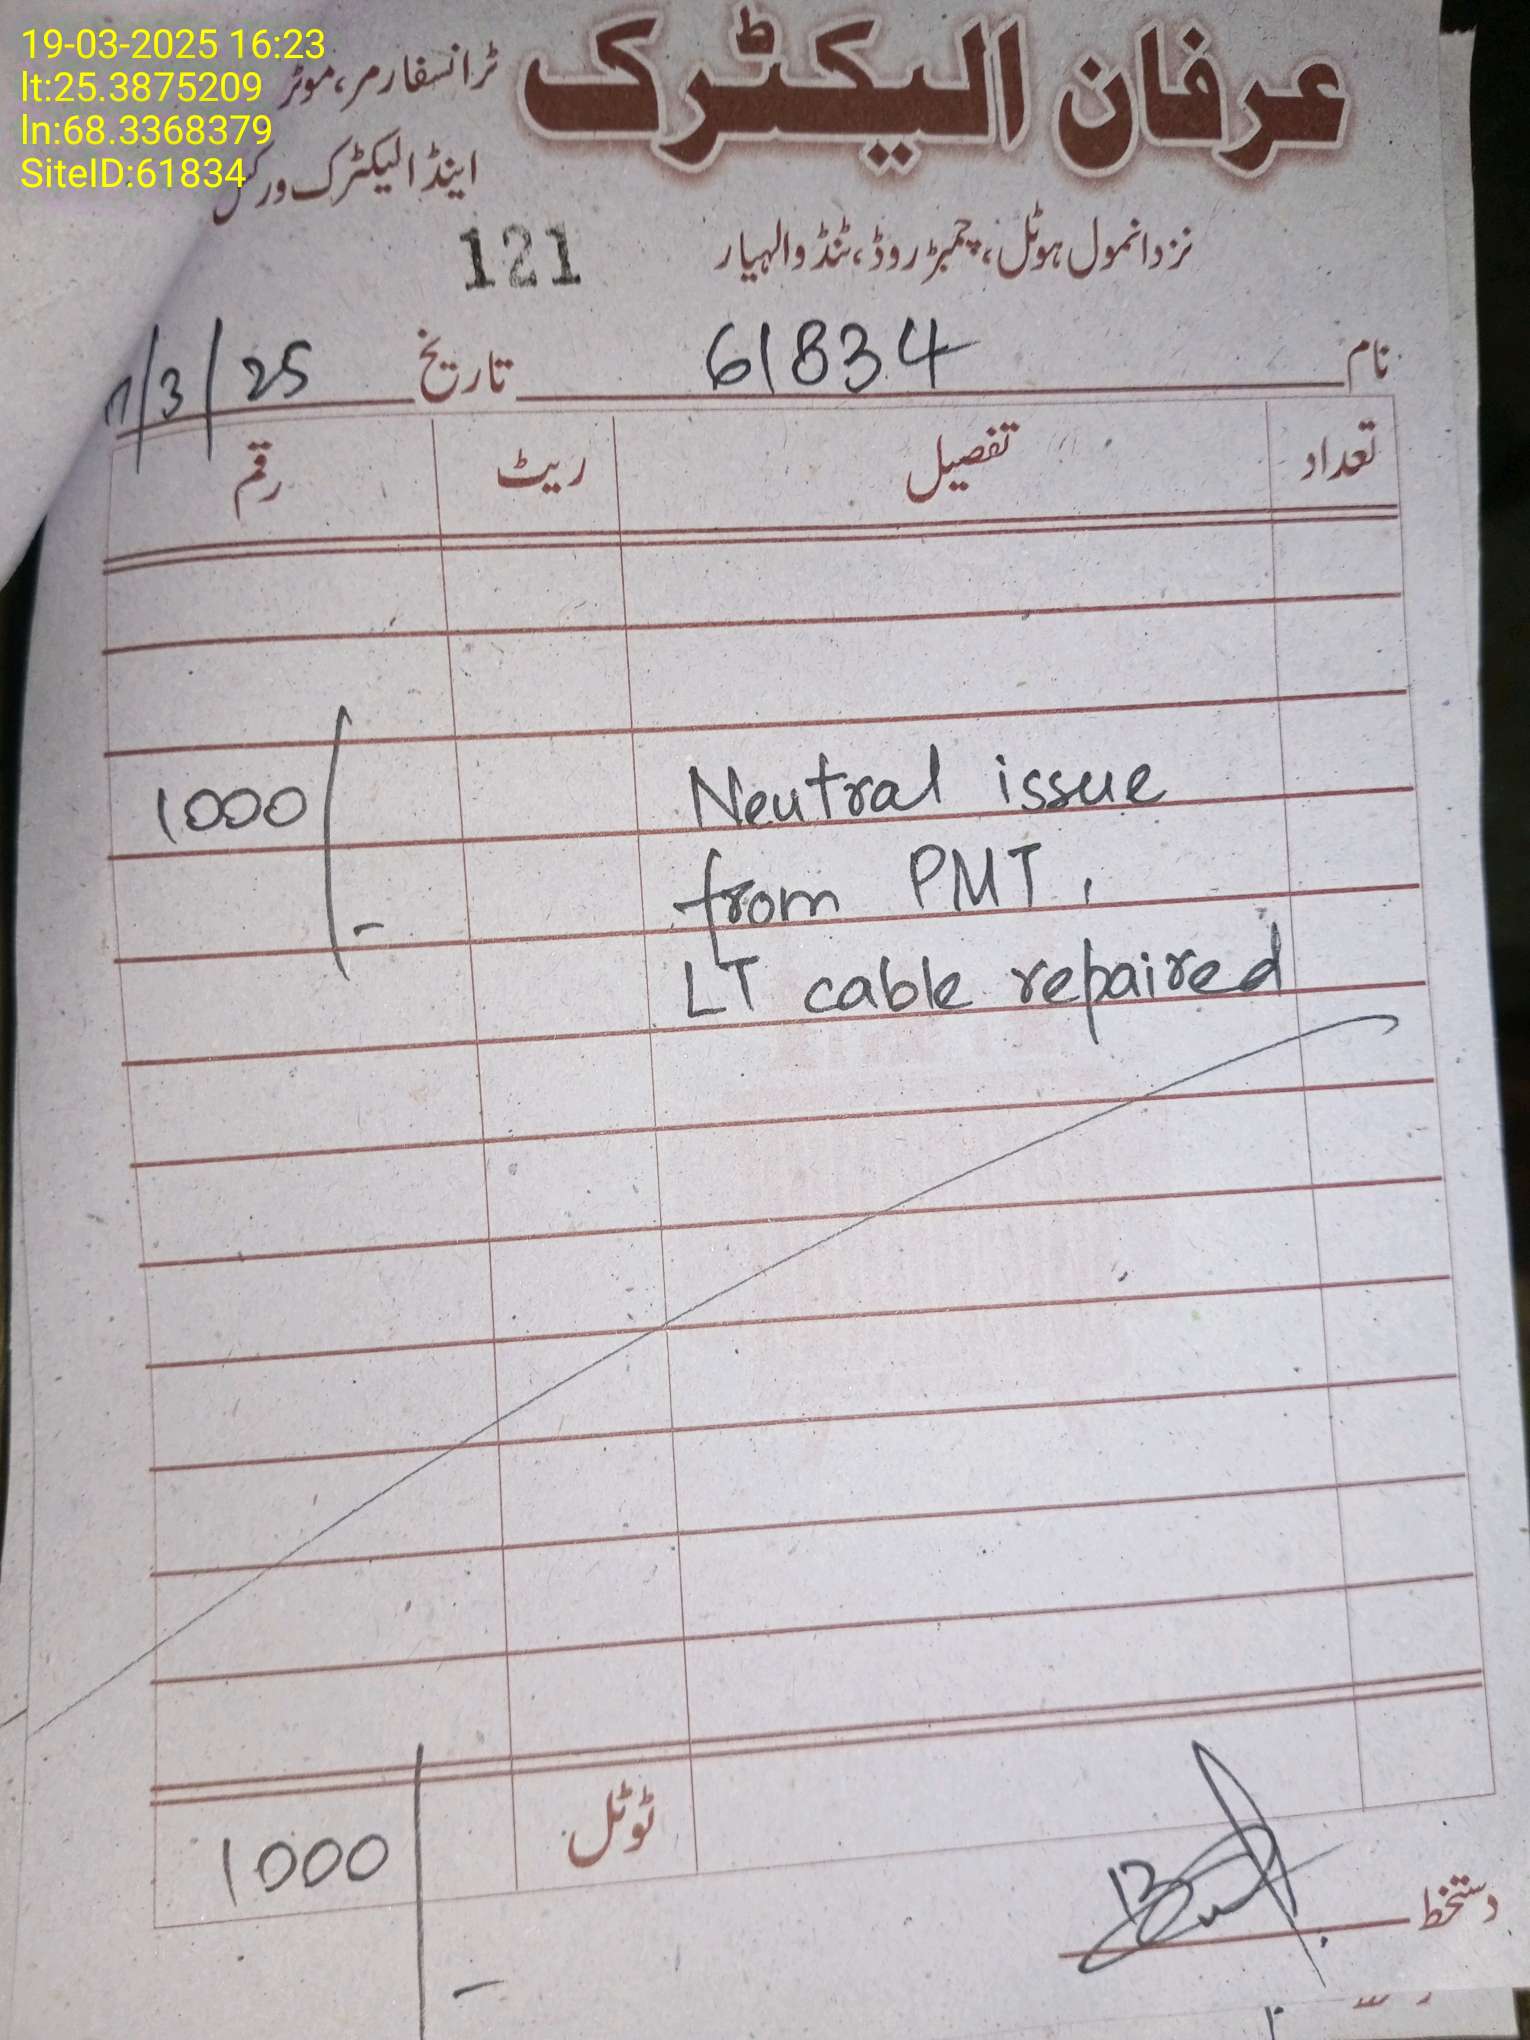 19-03-2025 16:23
lt:25.3875209
ln:68.3368379
SiteID:61834
عرفان الیکٹرک
ٹرانسفارمر، موٹر
اینڈ الیکٹرک ورکس
نزد انمول ہوٹل، چمبڑ روڈ، ٹنڈوالہیار
121
نام 61834 تاریخ /3/25
تعداد تفصیل ریٹ رقم
Neutral issue 1000/-
from PMT,
LT cable repaired
ٹوٹل 1000/-
دستخط